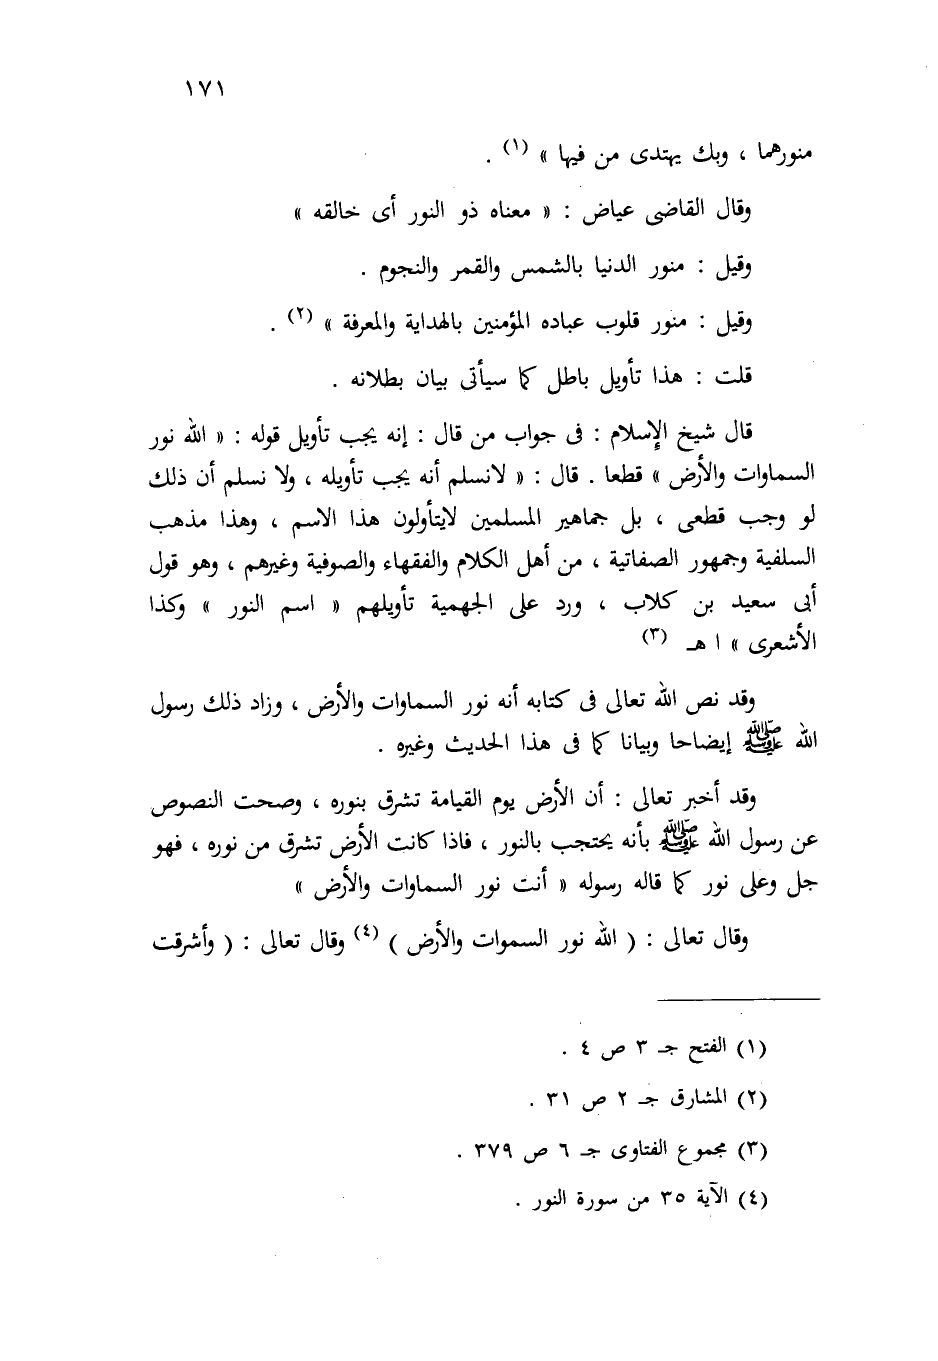 ١٧١
منورهما ، وبك يهتدى من فيها » (١) .
وقال القاضى عياض : « معناه ذو النور أى خالقه »
وقيل : منور الدنيا بالشمس والقمر والنجوم .
وقيل : منور قلوب عباده المؤمنين بالهداية والمعرفة » (٢) .
قلت : هذا تأويل باطل كما سيأتى بيان بطلانه .
قال شيخ الإسلام : فى جواب من قال : إنه يجب تأويل قوله : « الله نور
السماوات والأرض » قطعا . قال : « لانسلم أنه يجب تأويله ، ولا نسلم أن ذلك
لو وجب قطعى ، بل جماهير المسلمين لايتأولون هذا الاسم ، وهذا مذهب
السلفية وجمهور الصفاتية ، من أهل الكلام والفقهاء والصوفية وغيرهم ، وهو قول
أبى سعيد بن كلاب ، ورد على الجهمية تأويلهم « اسم النور » وكذا
الأشعرى » ا هـ (٣)
وقد نص الله تعالى فى كتابه أنه نور السماوات والأرض ، وزاد ذلك رسول
الله ﷺ إيضاحا وبيانا كما فى هذا الحديث وغيره .
وقد أخبر تعالى : أن الأرض يوم القيامة تشرق بنوره ، وصحت النصوص
عن رسول الله ﷺ بأنه يحتجب بالنور ، فاذا كانت الأرض تشرق من نوره ، فهو
جل وعلى نور كما قاله رسوله « أنت نور السماوات والأرض »
وقال تعالى : ( الله نور السموات والأرض ) (٤) وقال تعالى : ( وأشرقت
(١) الفتح جـ ٣ ص ٤ .
(٢) المشارق جـ ٢ ص ٣١ .
(٣) مجموع الفتاوى جـ ٦ ص ٣٧٩ .
(٤) الآية ٣٥ من سورة النور .